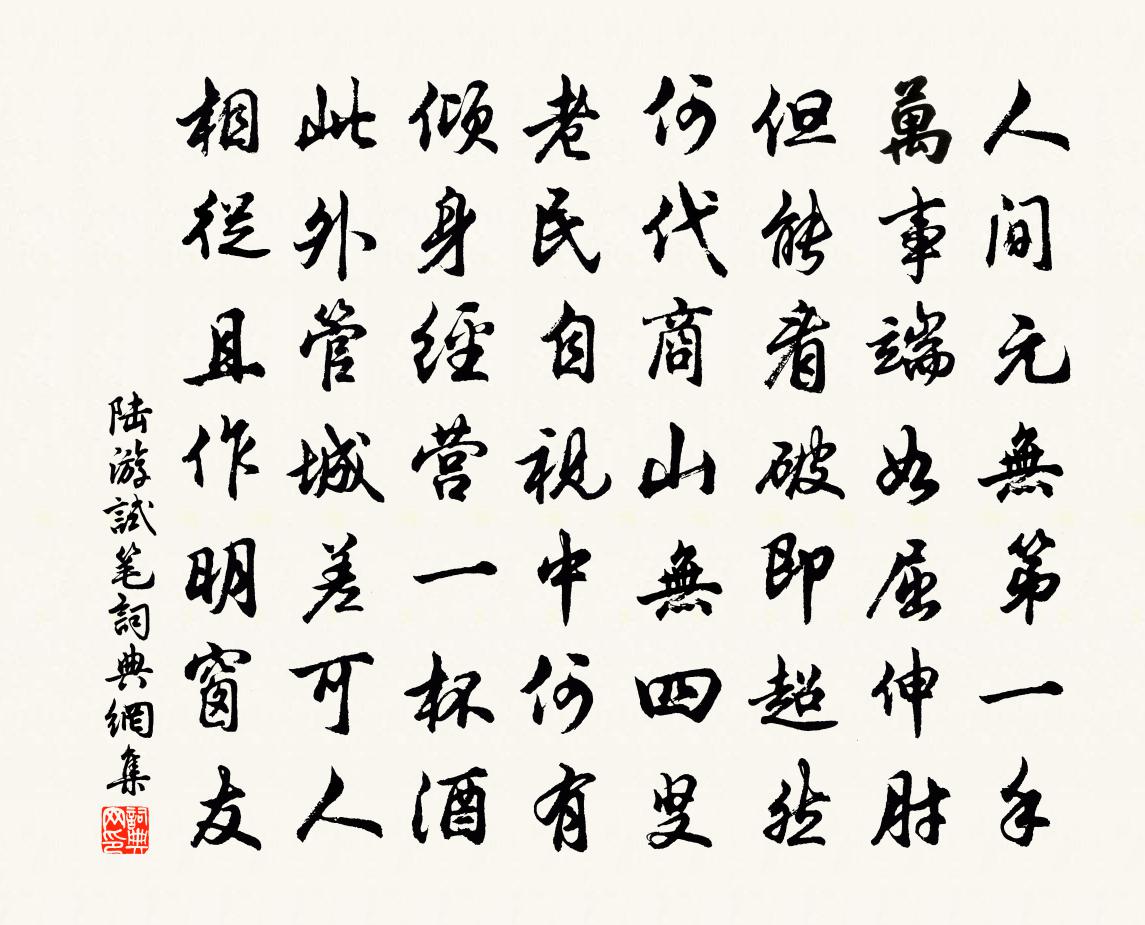 人间元無第一手
萬事端如屈伸肘
但能看破即超然
何代商山無四叟
老民自視中何有
傾身經营一杯酒
此外管城差可人
相從且作明窗友
陆游試笔詞典網集
詞典网印